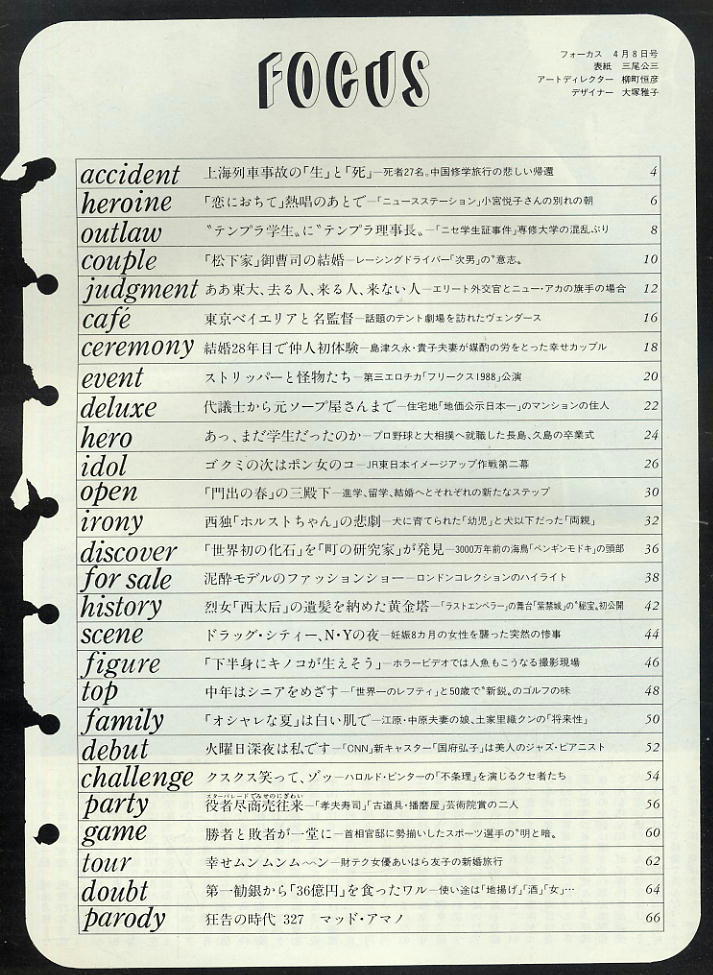 FOCUS
フォーカス 4月8日号
表紙 三尾公三
アートディレクター 柳町恒彦
デザイナー 大塚雅子
accident 上海列車事故の「生」と「死」―死者27名。中国修学旅行の悲しい帰還 4
heroine 「恋におちて」熱唱のあとで―「ニュースステーション」小宮悦子さんの別れの朝 6
outlaw 〝テンプラ学生〟に〝テンプラ理事長〟―「ニセ学生証事件」専修大学の混乱ぶり 8
couple 「松下家」御曹司の結婚―レーシングドライバー「次男」の〝意志〟 10
judgment ああ東大、去る人、来る人、来ない人―エリート外交官とニュー・アカの旗手の場合 12
café 東京ベイエリアと名監督―話題のテント劇場を訪れたヴェンダース 16
ceremony 結婚28年目で仲人初体験―島津久永・貴子夫妻が媒酌の労をとった幸せカップル 18
event ストリッパーと怪物たち―第三エロチカ「フリークス1988」公演 20
deluxe 代議士から元ソープ屋さんまで―住宅地「地価公示日本一」のマンションの住人 22
hero あっ、まだ学生だったのか―プロ野球と大相撲へ就職した長島、久島の卒業式 24
idol ゴクミの次はポン女のコ―JR東日本イメージアップ作戦第二幕 26
open 「門出の春」の三殿下―進学、留学、結婚へとそれぞれの新たなステップ 30
irony 西独「ホルストちゃん」の悲劇―犬に育てられた「幼児」と犬以下だった「両親」 32
discover 「世界初の化石」を「町の研究家」が発見―3000万年前の海鳥「ペンギンモドキ」の頭部 36
for sale 泥酔モデルのファッションショー―ロンドンコレクションのハイライト 38
history 烈女「西太后」の遺髪を納めた黄金塔―「ラストエンペラー」の舞台「紫禁城」の〝秘宝〟初公開 42
scene ドラッグ・シティー、N・Yの夜―妊娠8カ月の女性を襲った突然の惨事 44
figure 「下半身にキノコが生えそう」―ホラービデオでは人魚もこうなる撮影現場 46
top 中年はシニアをめざす―「世界一のレフティ」と50歳で〝新鋭〟のゴルフの味 48
family 「オシャレな夏」は白い肌で―江原・中原夫妻の娘、土家里織クンの「将来性」 50
debut 火曜日深夜は私です―「CNN」新キャスター「国府弘子」は美人のジャズ・ピアニスト 52
challenge クスクス笑って、ゾッ―ハロルド・ピンターの「不条理」を演じるクセ者たち 54
スターパレードでみせのにぎわい
party 役者尽商売往来―「孝夫寿司」「古道具・播磨屋」芸術院賞の二人 56
game 勝者と敗者が一堂に―首相官邸に勢揃いしたスポーツ選手の〝明と暗〟 60
tour 幸せムンムンム〜〜ン―財テク女優あいはら友子の新婚旅行 62
doubt 第一勧銀から「36億円」を食ったワル―使い途は「地揚げ」「酒」「女」… 64
parody 狂告の時代 327 マッド・アマノ 66